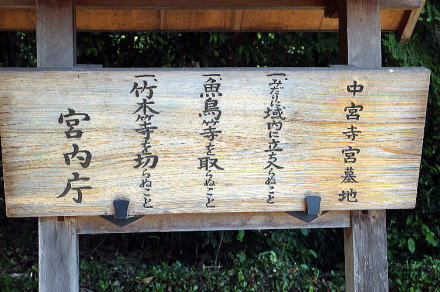 中宮寺宮墓地
一、みだりに域内に立ち入らぬこと
一、魚鳥等を取らぬこと
一、竹木等を切らぬこと
宮内庁